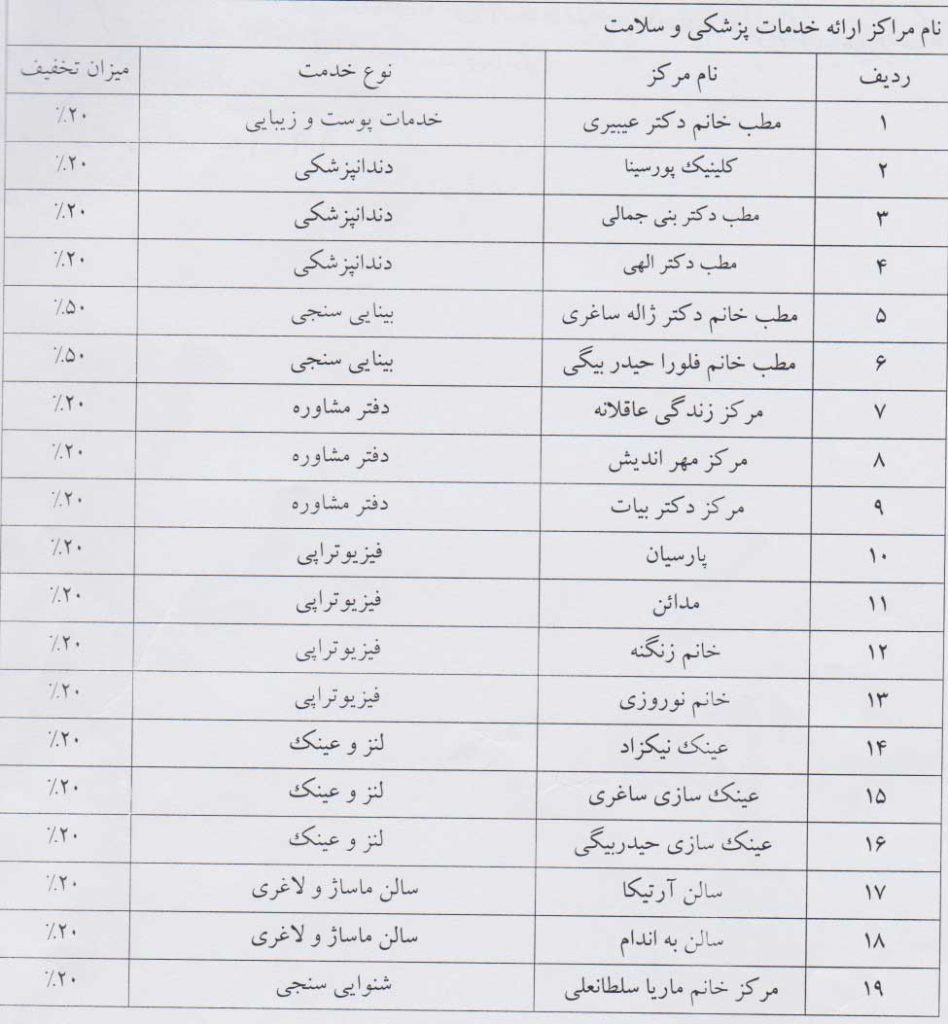 نام مراکز ارائه خدمات پزشکی و سلامت
ردیف نام مرکز نوع خدمت میزان تخفیف
۱ مطب خانم دکتر عیبیری خدمات پوست و زیبایی ۲۰٪
۲ کلینیک پورسینا دندانپزشکی ۲۰٪
۳ مطب دکتر بنی جمالی دندانپزشکی ۲۰٪
۴ مطب دکتر الهی دندانپزشکی ۲۰٪
۵ مطب خانم دکتر ژاله ساغری بینایی سنجی ۵۰٪
۶ مطب خانم فلورا حیدر بیگی بینایی سنجی ۵۰٪
۷ مرکز زندگی عاقلانه دفتر مشاوره ۲۰٪
۸ مرکز مهر اندیش دفتر مشاوره ۲۰٪
۹ مرکز دکتر بیات دفتر مشاوره ۲۰٪
۱۰ پارسیان فیزیوتراپی ۲۰٪
۱۱ مدائن فیزیوتراپی ۲۰٪
۱۲ خانم زنگنه فیزیوتراپی ۲۰٪
۱۳ خانم نوروزی فیزیوتراپی ۲۰٪
۱۴ عینک نیکزاد لنز و عینک ۲۰٪
۱۵ عینک سازی ساغری لنز و عینک ۲۰٪
۱۶ عینک سازی حیدربیگی لنز و عینک ۲۰٪
۱۷ سالن آرتیکا سالن ماساژ و لاغری ۲۰٪
۱۸ سالن به اندام سالن ماساژ و لاغری ۲۰٪
۱۹ مرکز خانم ماریا سلطانعلی شنوایی سنجی ۲۰٪